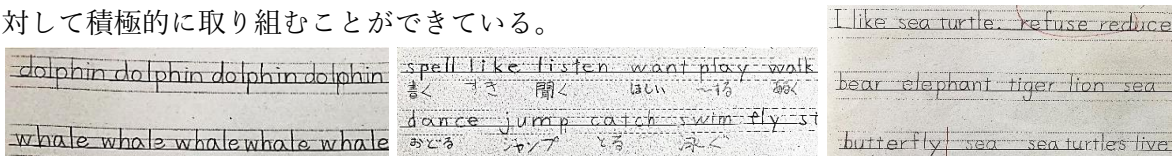 対して積極的に取り組むことができている。
dolphin dolphin dolphin dolphin
whale whale whale whale whale
spell like listen want play walk
書く すき 聞く ほしい ～する 歩く
dance jump catch swim fly st
おどる ジャンプ とる 泳ぐ
I like sea turtle. refuse reduce
bear elephant tiger lion sea
butterfly sea sea turtles live